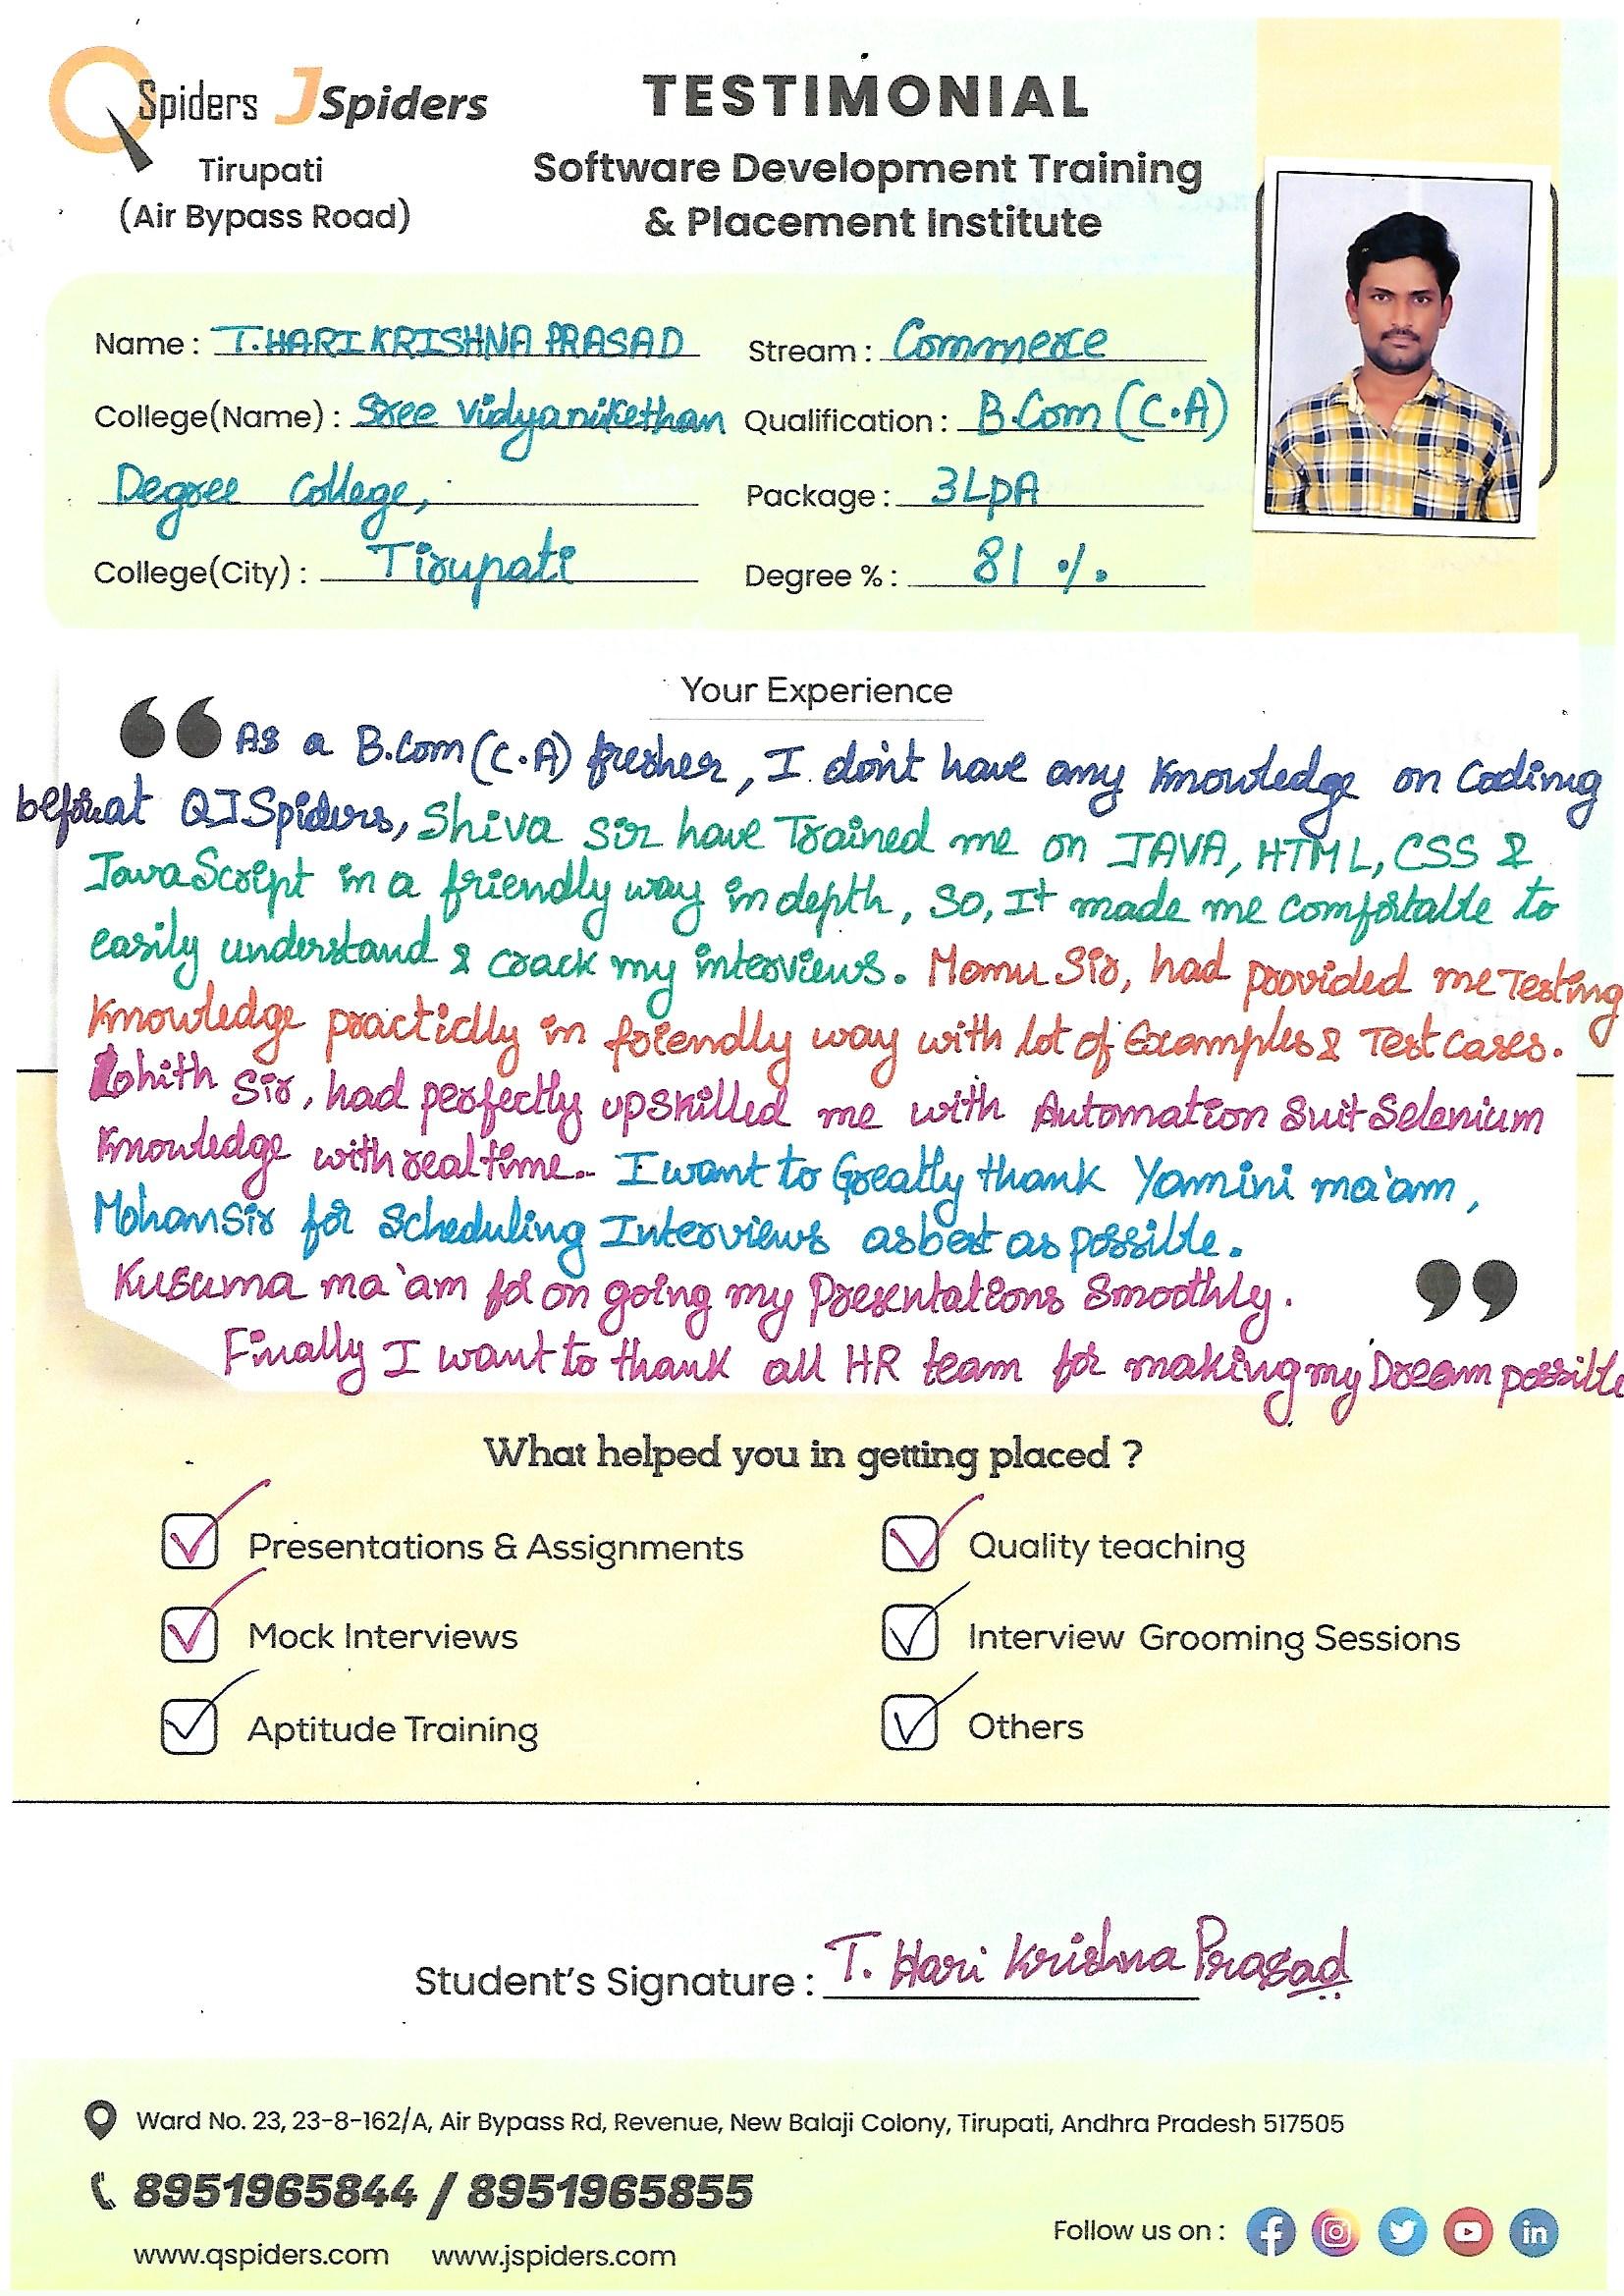 QSpiders JSpiders
Tirupati
(Air Bypass Road)
TESTIMONIAL
Software Development Training
& Placement Institute
Name : T. HARI KRISHNA PRASAD
Stream : Commerce
College(Name) : Sree Vidyanikethan
Qualification : B.Com (C.A)
Degree College,
Package : 3LpA
College(City) : Tirupati
Degree % : 81 %
Your Experience
“ As a B.Com (C.A) fresher, I don't have any knowledge on Coding
before at QJSpiders, Shiva Sir have Trained me on JAVA, HTML, CSS &
JavaScript in a friendly way in depth, So, It made me comfortable to
easily understand & crack my interviews. Momu Sir, had provided me Testing
Knowledge practiclly in friendly way with lot of Examples & Test Cases.
Lohith Sir, had perfectly upskilled me with Automation Suit Selenium
Knowledge with realtime.. I want to Greatly thank Yamini ma'am,
Mohan Sir for Scheduling Interviews as best as possible.
Kusuma ma'am for on going my Presentations Smoothly. ”
Finally I want to thank all HR team for making my Dream possible
What helped you in getting placed ?
Presentations & Assignments
Quality teaching
Mock Interviews
Interview Grooming Sessions
Aptitude Training
Others
Student's Signature : T. Hari Krishna Prasad
Ward No. 23, 23-8-162/A, Air Bypass Rd, Revenue, New Balaji Colony, Tirupati, Andhra Pradesh 517505
8951965844 / 8951965855
Follow us on :
www.qspiders.com www.jspiders.com